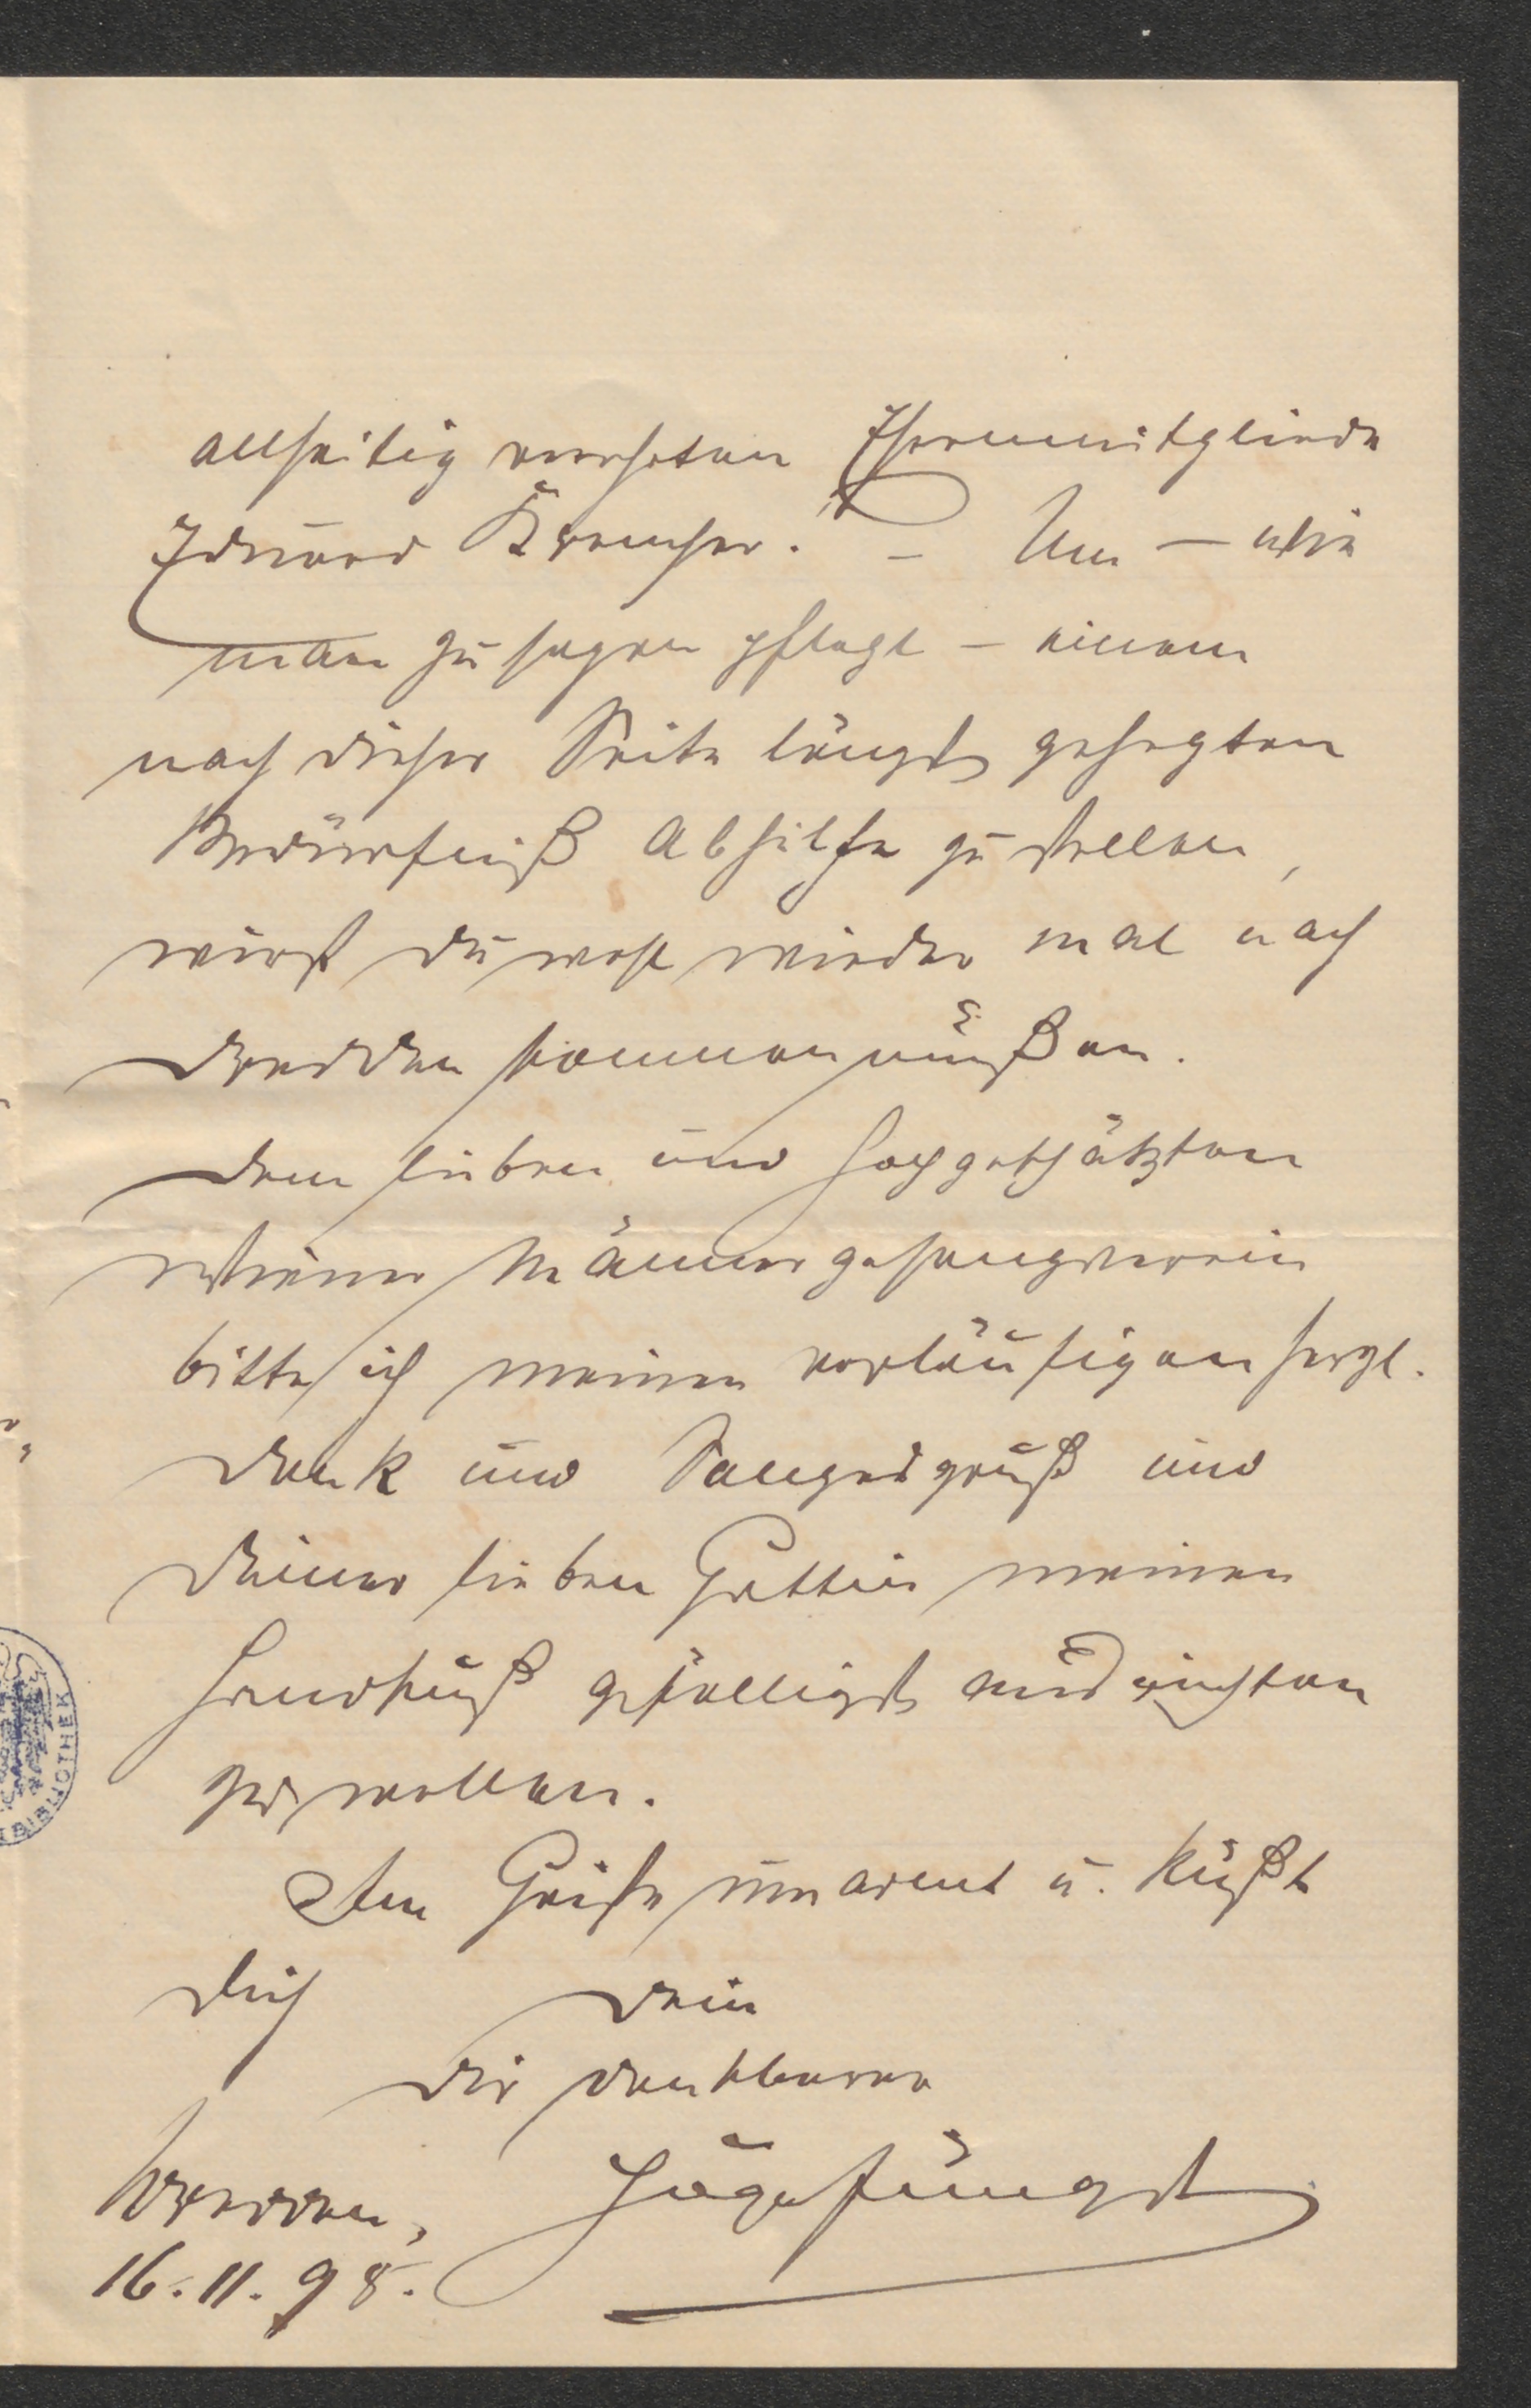 allseitig verehrten Ehrenmitgliede
Eduard Kremser." – Um – wie
man zu sagen pflegt – einem
nach dieser Seite längst gehegten
Bedürfniß Abhilfe zu stellen,
wirst du wohl wieder mal nach
Dresden kommen müßen.
Dem lieben und hochgeschätzten
Wiener Männergesangverein
bitte ich meinen vorläufigen herzl.
Dank und Sangesgruß und
Deiner lieben Gattin meinen
Handkuß gefälligst ausrichten
zu wollen.
Im Geiste umarmt u. küßt
Dich Dein
Dir dankbarer
Hugo Jüngst
Dresden,
16.11.98.
BIBLIOTHEK